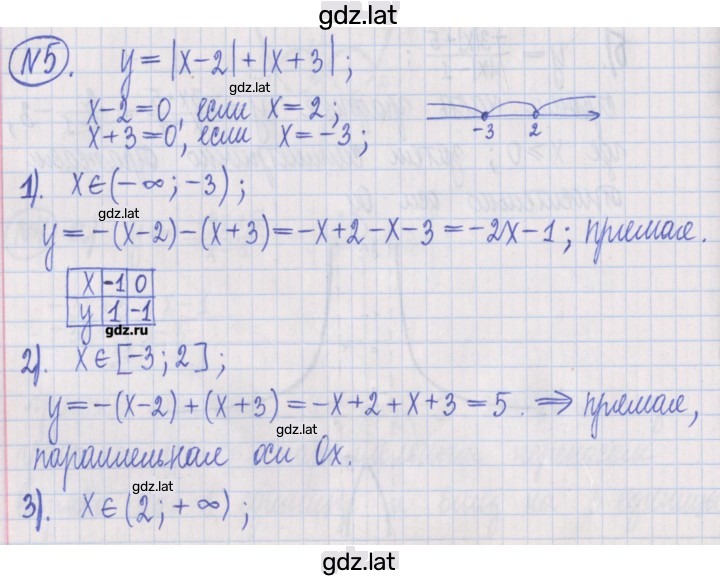 gdz.lat
№5. y=|x-2|+|x+3|;
gdz.lat
x-2=0, если x=2;
x+3=0, если x=-3;
-3 2
1). x∈(-∞;-3);
gdz.lat
y=-(x-2)-(x+3)=-x+2-x-3=-2x-1; прямая.
x -1 0
y 1 -1
gdz.ru
2). x∈[-3;2];
gdz.lat
y=-(x-2)+(x+3)=-x+2+x+3=5. ⇒ прямая,
gdz.lat
параллельная оси Ox.
gdz.lat
3). x∈(2;+∞);
gdz.lat
gdz.lat